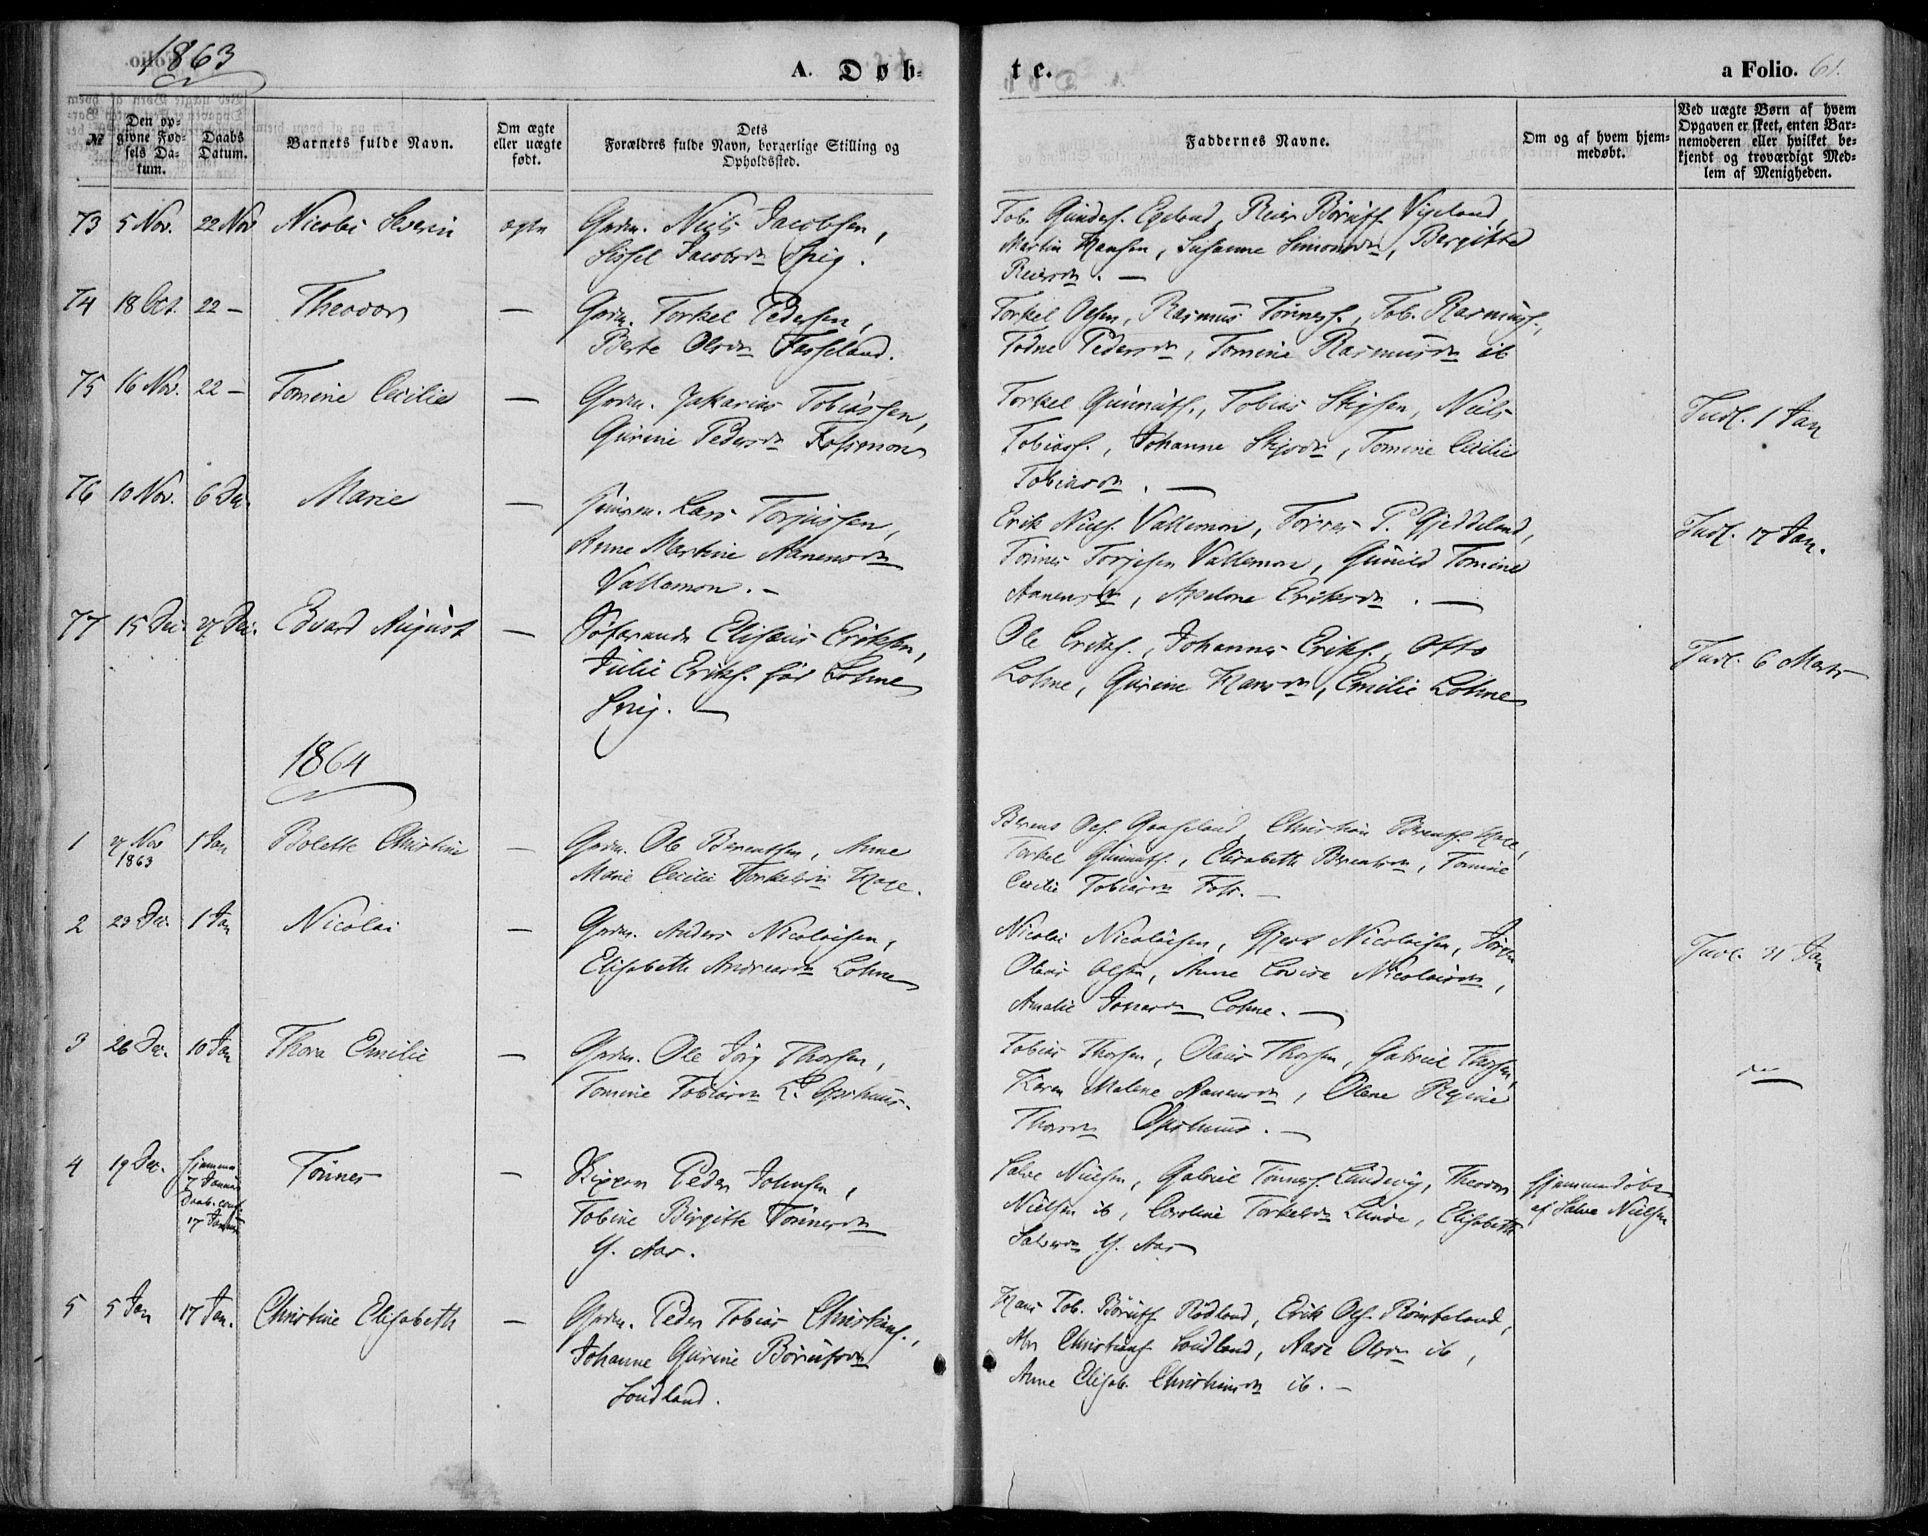 1863
A. Døb-
te.
a Folio. 61.
№
Den op-
givne Fød-
sels Da-
tum.
Daabs
Datum.
Barnets fulde Navn.
Om ægte
eller uægte
født.
Dets
Forældres fulde Navn, borgerlige Stilling og
Opholdssted.
Faddernes Navne.
Om og af hvem hjem-
medøbt.
Ved uægte Børn af hvem
Opgaven er skeet, enten Bar-
nemoderen eller hvilket be-
kjendt og troværdigt Med-
lem af Menigheden.
73 5 Nov. 22 Nov Nicolai Severin ægte Gdm. Niels Jacobsen,
Sissel Jacobsdn Spig.
Tob. Gunders. Egeland, Reier Børufs. Vigeland,
Martin Hansen, Susanne Simonsdn, Bergitte
Reiersdn. —
74 18 Oct. 22 – Theodor — Gdm. Torkel Pedersen,
Berte Olsdn Fasseland.
Torkel Olsen, Rasmus Tønness., Tob. Rasmuss.,
Todne Pedersdn, Tomine Rasmusdn ib
75 16 Nov. 22 – Tomine Cecilie — Gdm. Zakarias Tobiassen,
Gurine Pedersdn Fossemon
Torkel Gunnufs., Tobias Stigsen, Niels
Tobiass., Johanne Stigsdn, Tomine Cecilie
Tobiasdn. —
Indl. 1 Jan
76 10 Nov. 6 De. Marie — Huusm. Lars Torjussen,
Anne Martine Aanensdn
Vallemon. –
Erik Niels. Vallemon, Torres P. Gjeddeland,
Tønnes Torjesen Vallemon, Gunild Tomine
Aanensdn, Apelone Eriksdn. —
Indl. 17 Jan.
77 15 Dec. 27 Dec. Edvard August — Søfarende Elisæus Eriksen,
Julie Eriks. før Lohne
Spig. —
Ole Eriks., Johannes Eriks., Otto
Lohne, Gurine Hansdn, Emilie Lohne
Indl. 6 Marts
1864
1 27 Nov 1863 1 Jan Bolette Christine — Gdm. Ole Berentsen, Anne
Marie Cecilie Torkelsdn Hace.
Berent Ols. Gaaseland, Christian Berents. Hace,
Torkel Gunnufs., Elisabeth Berentsdn, Tomine
Cecilie Tobiasdn Foss. —
2 23 De. 1 Jan Nicolai — Gdm. Anders Nicolaisen,
Elisabeth Andreasdn Lohne
Nicolai Nicolaisen, Gjert Nicolaisen, Jørgen
Olaus Olsen, Anne Lovise Nicolaisdn,
Amalie Jonasdn Lohne. —
Indl. 31 Jan
3 26 De. 10 Jan Thora Emilie — Gdm. Ole Jørg Thorsen,
Tomine Tobiasdn L. Opshuus.
Tobias Thorsen, Olaus Thorsen, Gabriel Thorsen,
Karen Malene Aanensdn, Olene Regine
Thorsdn Opshuus. —
4 19 De. Hjemme
7 Januar
Daab. conf.
17 Januar
Tønnes — Skipper Peder Johnsen,
Tobine Birgitte Tønnesdn
Y. Aar.
Salve Nielsen, Gabriel Tønness. Lundevig, Theodor
Nielsen ib, Caroline Torkelsdn Lunde, Elisabeth
Salvesdn Y. Aar
Hjemmedøbt
af Salve Nielsen
5 5 Jan 17 Jan. Christine Elisabeth — Gdm. Peder Tobias Christians.,
Johanne Gurine Børufsdn
Loudland.
Hans Tob. Børufs. Rødland, Erik Ols. Rømteland,
Abr. Christians. Loudland, Aase Olsdn ib,
Anne Elisab. Christiansdn ib. —